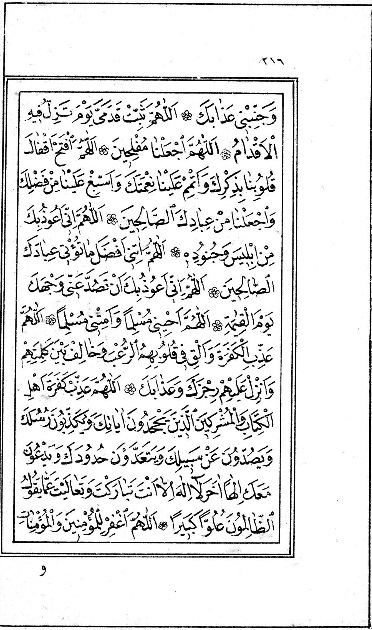 ٣١٦
وَجَنِّبْنِي عَذَابَكَ ۞ اَللّٰهُمَّ ثَبِّتْ قَدَمَيَّ يَوْمَ تَزِلُّ فِيهِ
الْاَقْدَامُ ۞ اَللّٰهُمَّ اجْعَلْنَا مُفْلِحِينَ ۞ اَللّٰهُمَّ افْتَحْ اَقْفَالَ
قُلُوبِنَا بِذِكْرِكَ وَاَتْمِمْ عَلَيْنَا نِعْمَتَكَ وَاَسْبِغْ عَلَيْنَا مِنْ فَضْلِكَ
وَاجْعَلْنَا مِنْ عِبَادِكَ الصَّالِحِينَ ۞ اَللّٰهُمَّ اِنِّي اَعُوذُ بِكَ
مِنْ اِبْلِيسَ وَجُنُودِهِ ۞ اَللّٰهُمَّ اٰتِنِي اَفْضَلَ مَا تُؤْتِي عِبَادَكَ
الصَّالِحِينَ ۞ اَللّٰهُمَّ اِنِّي اَعُوذُ بِكَ اَنْ تَصُدَّ عَنِّي وَجْهَكَ
يَوْمَ الْقِيٰمَةِ ۞ اَللّٰهُمَّ اَحْيِنِي مُسْلِمًا وَاَمِتْنِي مُسْلِمًا ۞ اَللّٰهُمَّ
عَذِّبِ الْكَفَرَةَ وَاَلْقِ فِي قُلُوبِهِمُ الرُّعْبَ وَخَالِفْ بَيْنَ كَلِمَتِهِمْ
وَاَنْزِلْ عَلَيْهِمْ رِجْزَكَ وَعَذَابَكَ ۞ اَللّٰهُمَّ عَذِّبْ كَفَرَةَ اَهْلِ
الْكِتَابِ وَالْمُشْرِكِينَ الَّذِينَ يَجْحَدُونَ اٰيَاتِكَ وَيُكَذِّبُونَ رُسُلَكَ
وَيَصُدُّونَ عَنْ سَبِيلِكَ وَيَتَعَدَّوْنَ حُدُودَكَ وَيَدْعُونَ
مَعَكَ اِلٰهًا اٰخَرَ لَا اِلٰهَ اِلَّا اَنْتَ تَبَارَكْتَ وَتَعَالَيْتَ عَمَّا يَقُولُ
الظَّالِمُونَ عُلُوًّا كَبِيرًا ۞ اَللّٰهُمَّ اغْفِرْ لِلْمُؤْمِنِينَ وَالْمُؤْمِنَاتِ
و